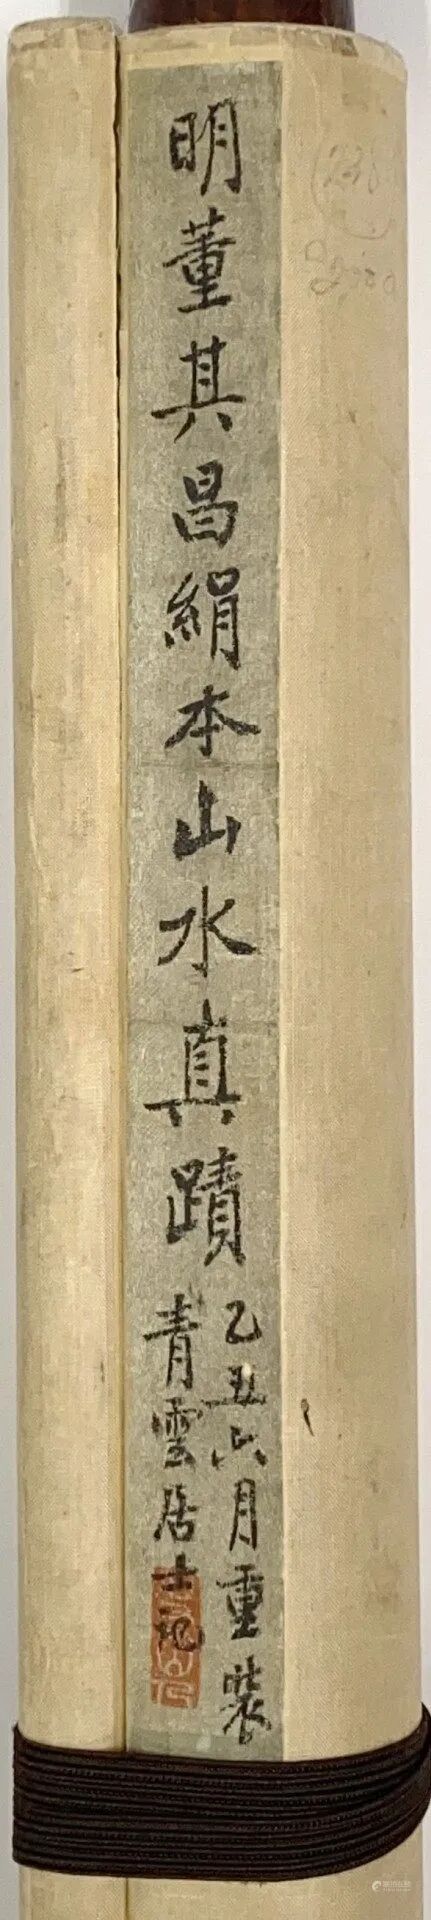 明董其昌絹本山水真蹟
乙丑六月重裝
青雲居士記